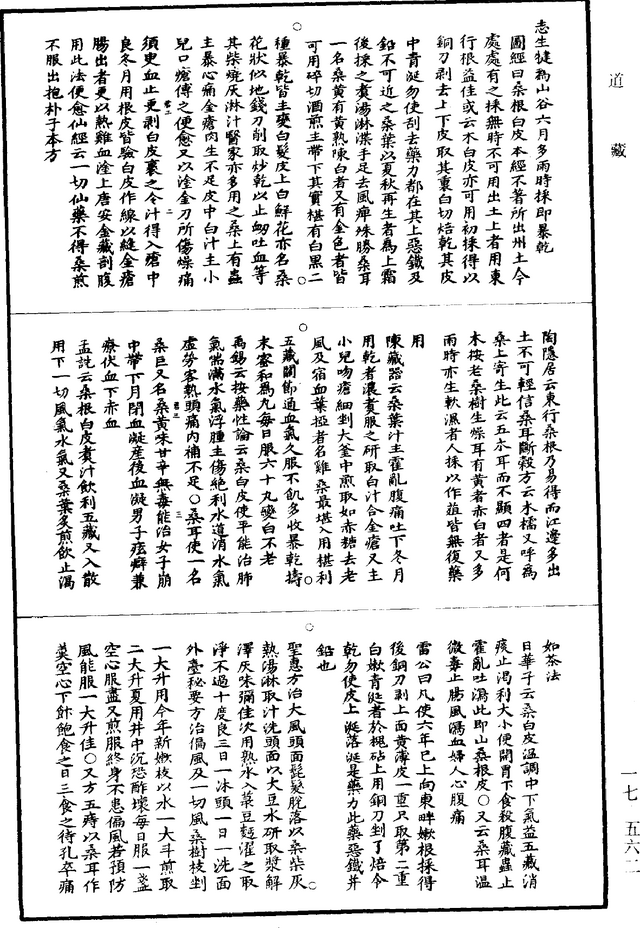 道藏
志生犍為山谷六月多雨時採即暴乾
圖經曰桑根白皮本經不著所出州土今
處處有之採無時不可用出土上者用東
行根益佳或云木白皮亦可用初採得以
銅刀剥去上下皮取其裏白切焙乾其皮
中青涎勿使刮去藥力都在其上惡鐵及
鉛不可近之桑葉以夏秋再生者為上霜
後採之煮湯淋渫手足去風痺殊勝桑耳
一名桑黄有黄熟陳白者又有金色者皆
可用碎切酒煎主帶下其實椹有白黑二
種暴乾皆主變白髮皮上白鮮花亦名桑
花狀似地錢刀削取炒乾以止衂吐血等
其柴燒灰淋汁醫家亦多用之桑上有蟲
主暴心痛金瘡肉生不足皮中白汁主小
兒口瘡傅之便愈又以塗金刀所傷燥痛
須臾血止更剥白皮裹之令汁得入瘡中
良冬月用根皮皆驗白皮作線以縫金瘡
腸出者更以熱雞血塗上唐安金藏剖腹
用此法便愈仙經云一切仙藥不得桑煎
不服出抱朴子本方
陶隱居云東行桑根乃易得而江邊多出
土不可輕信桑耳斷穀方云木檽又呼為
桑上寄生此云五木耳而不顯四者是何
木按老桑樹生燥耳有黄者赤白者又多
雨時亦生軟濕者人採以作葅皆無復藥
用
陳藏器云桑葉汁主霍亂腹痛吐下冬月
用乾者濃煮服之研取白汁合金瘡又主
小兒吻瘡細剉大釜中煎取如赤糖去老
風及宿血葉椏者名雞桑最堪入用椹利
五藏關節通血氣久服不飢多收暴乾擣
末蜜和為丸每日服六十丸變白不老
禹錫云按藥性論云桑白皮使平能治肺
氣喘滿水氣浮腫主傷絶利水道消水氣
虚勞客熱頭痛內補不足○桑耳使一名
桑臣又名桑黄味甘辛無毒能治女子崩
中帶下月閉血凝產後血凝男子痃癖兼
療伏血下赤血
孟詵云桑根白皮煮汁飲利五藏又入散
用下一切風氣水氣又桑葉炙煎飲止渴
如茶法
日華子云桑白皮温調中下氣益五藏消
痰止渴利大小便開胃下食殺腹藏蟲止
霍亂吐瀉此即山桑根皮○又云桑耳温
微毒止腸風瀉血婦人心腹痛
雷公曰凡使六年已上向東畔嫩根採得
後銅刀剥上面黄薄皮一重只取第二重
白嫩青涎者於槐砧上用銅刀剉了焙令
乾勿使皮上涎落涎是藥力此藥惡鐵并
鉛也
聖惠方治大風頭面髭髮脱落以桑柴灰
熱湯淋取汁洗頭面以大豆水研取漿解
澤灰味彌佳次用熟水入菉豆麵濯之取
淨不過十度良三日一沐頭一日一洗面
外臺秘要方治偏風及一切風桑樹枝剉
一大升用今年新嫩枝以水一大斗煎取
二大升夏用井中沉恐酢壞每日服一盞
空心服盡又煎服終身不患偏風若預防
風能服一大升佳○又方五痔以桑耳作
羹空心下飰飽食之日三食之待孔卒痛
一七 五六二